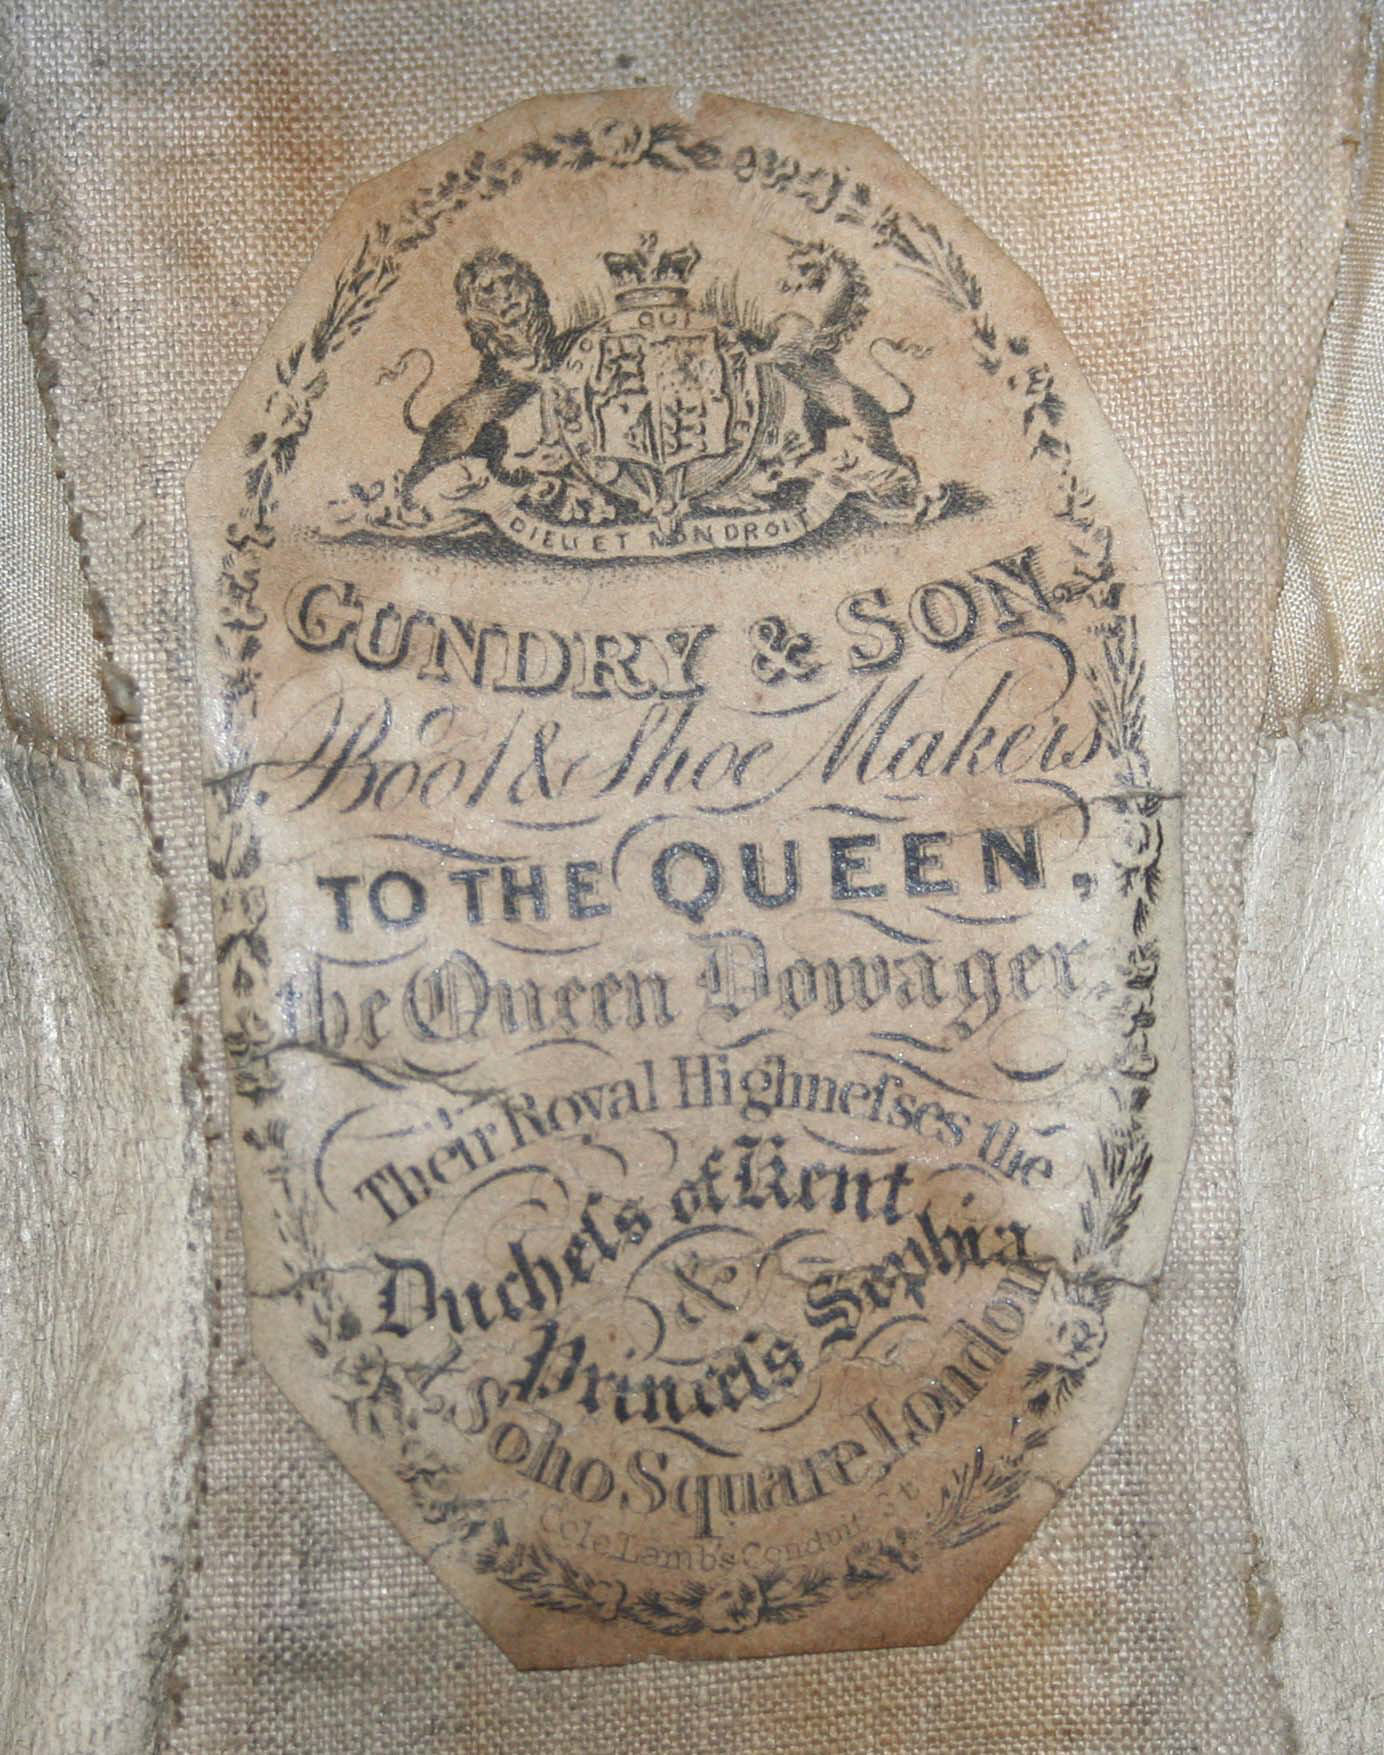 QUI
DIEU ET MON DROIT
GUNDRY & SON
Boot & Shoe Makers
TO THE QUEEN,
the Queen Dowager,
Their Royal Highneſses the
Ducheſs of Kent
&
Princeſs Sophia
Soho Square, London
Cole Lamb's Conduit St